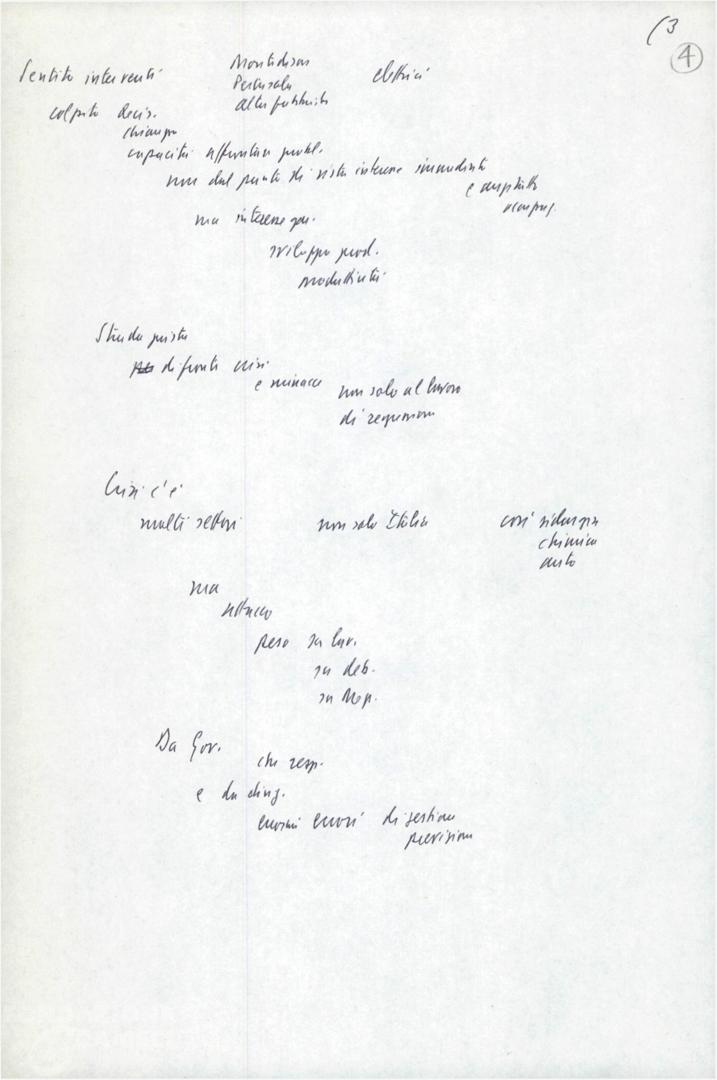 (3
4
Sentito interventi Montedison elettrici
Pertusola
altre fabbriche
colpito decis.
chiarezza
capacità affrontare probl.
non dal punto di vista interesse immediato
e aspetto
occupaz.
ma interesse gen.
sviluppo prod.
produttività
Strada giusta
di fronte crisi
e minacce non solo al lavoro
di regressione
Crisi c'è
molti settori non solo Italia così siderurgia
chimica
auto
ma
attacco
peso su lav.
su deb.
su Mep.
Da Gov.
che resp.
e da dirig.
enormi errori di gestione
previsione